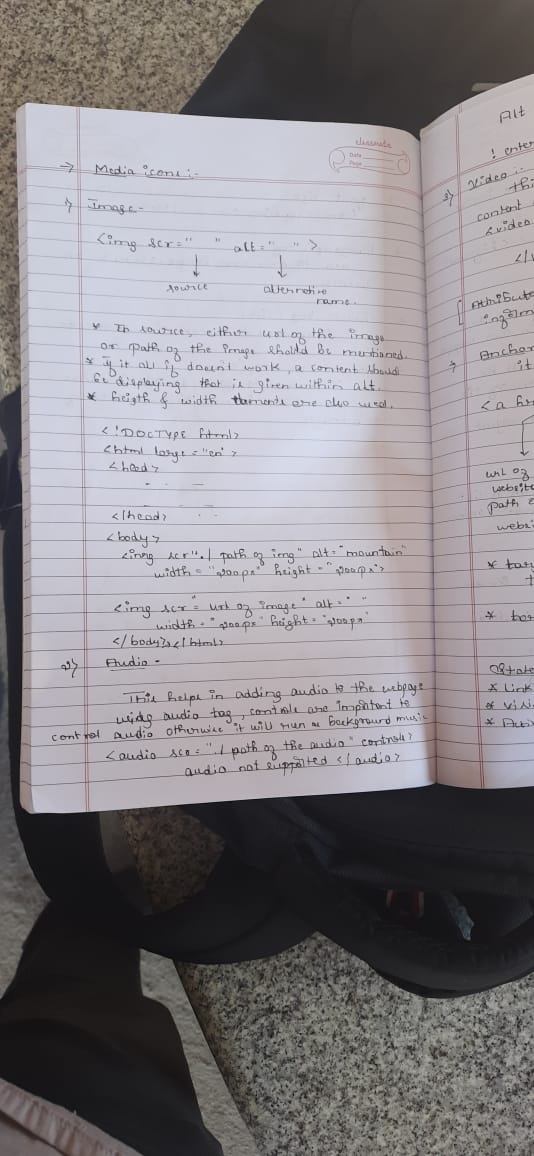 classmate
Date
Page
→ Media icons :-
1) Image -
<img scr=" " alt=" ">
source
alternative
name.
* In source, either url of the image
or path of the image should be mentioned.
* If it all if doesn't work, a content should
be displaying that is given within alt.
* heigth & width are also used.
<!DOCTYPE html>
<html lang="en">
<head>
</head>
<body>
<img scr"./ path of img" alt="mountain"
width="400px" height="400px">
<img scr="url of image" alt=" "
width="400px" height="400px"
</body></html>
2) Audio -
This helps in adding audio to the webpage
using audio tag, controls are important to
control audio otherwise it will run as background music
<audio scr="./ path of the audio" controls>
audio not supported </audio>
Alt
! enter
3) Video :-
thi
content
<video
</v
[ Attribute
Anchor
it
<a h
url of
website
path
websi
* tar
* Link
* Visi
* Acti